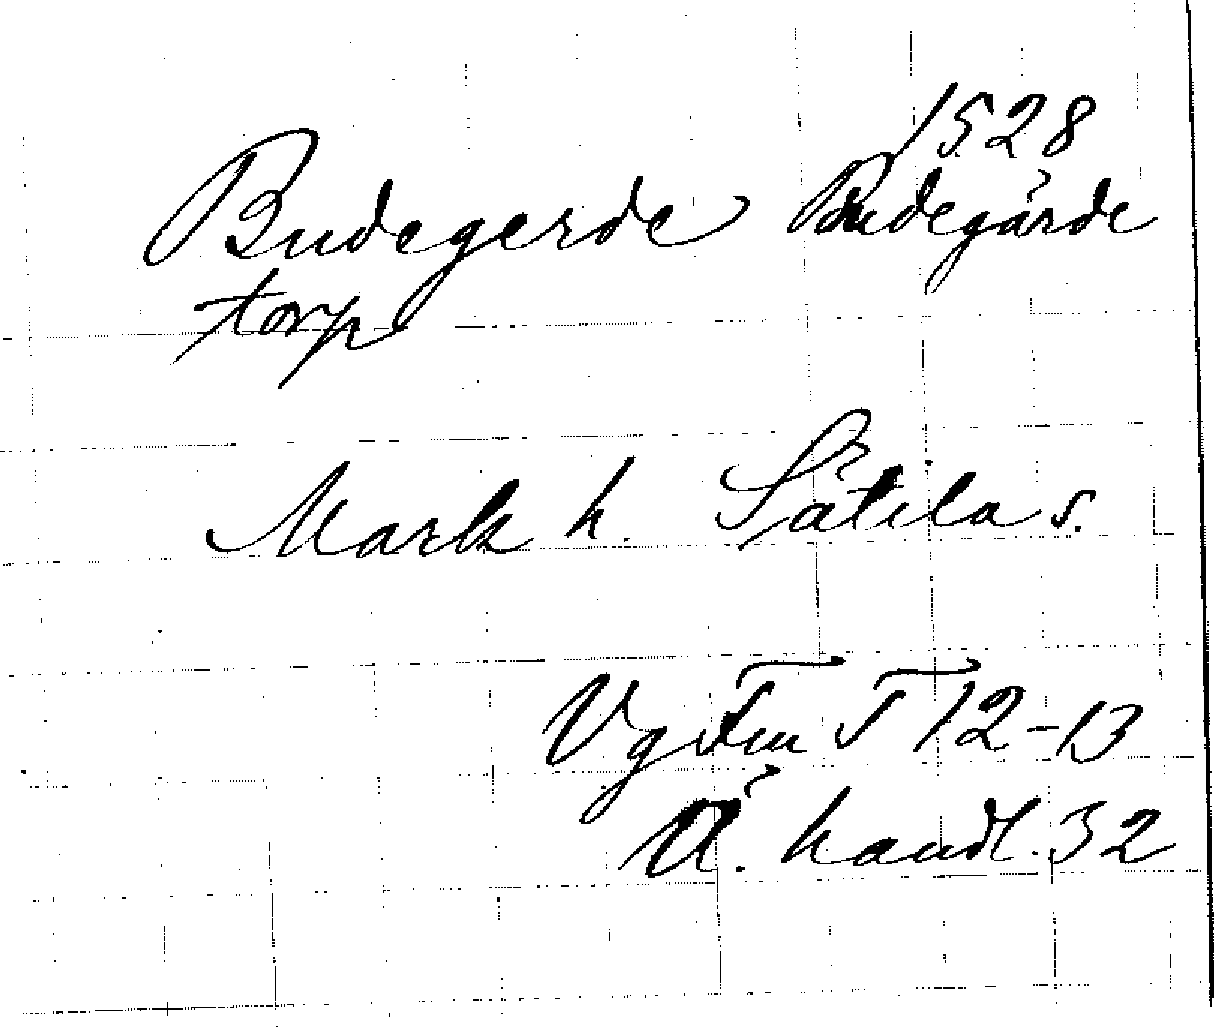 1528
Budegerde Budegårde
torp
Mark h. Sätila s.
Vg Fm T 12-13
Ä. handl. 32